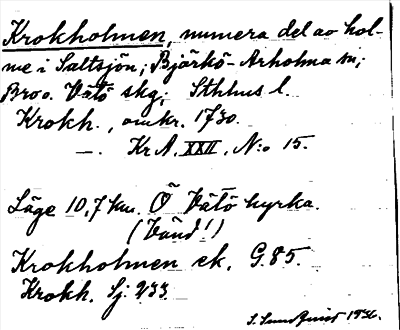 Krokholmen, numera del av hol-
me i Saltsjön; Björkö-Arholma sn;
Bro o. Vätö skg; Sthlms l.
Krokh., omkr. 1730.
—. Kr A. XXII. N:o 15.
Läge 10,7 km. Ö Vätö kyrka.
(Vänd!)
Krokholmen ek. G. 85.
Krokh. Sj: 233
S. Sundquist 1936.